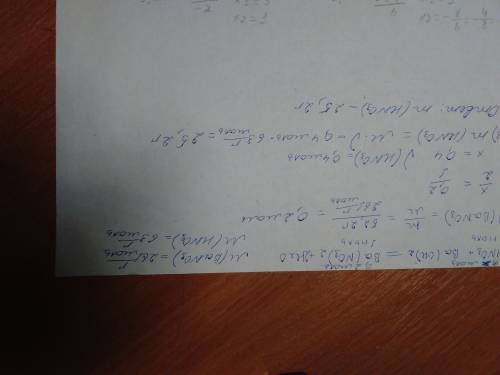 HNO3 + Ba(OH)2 = Ba(NO3)2 + 2H2O
0,2 моль
2 моль 1 моль
M(BaNO3) = 261 г/моль
M(HNO3) = 63 г/моль
(BaNO3) = m/M = 52,2г / 261 г/моль = 0,2 моль
x/2 = 0,2/1
x = 0,4 ν(HNO3) = 0,4 моль
m(HNO3) = M·ν = 0,4 моль · 63 г/моль = 25,2г
Ответ: m(HNO3) – 25,2г